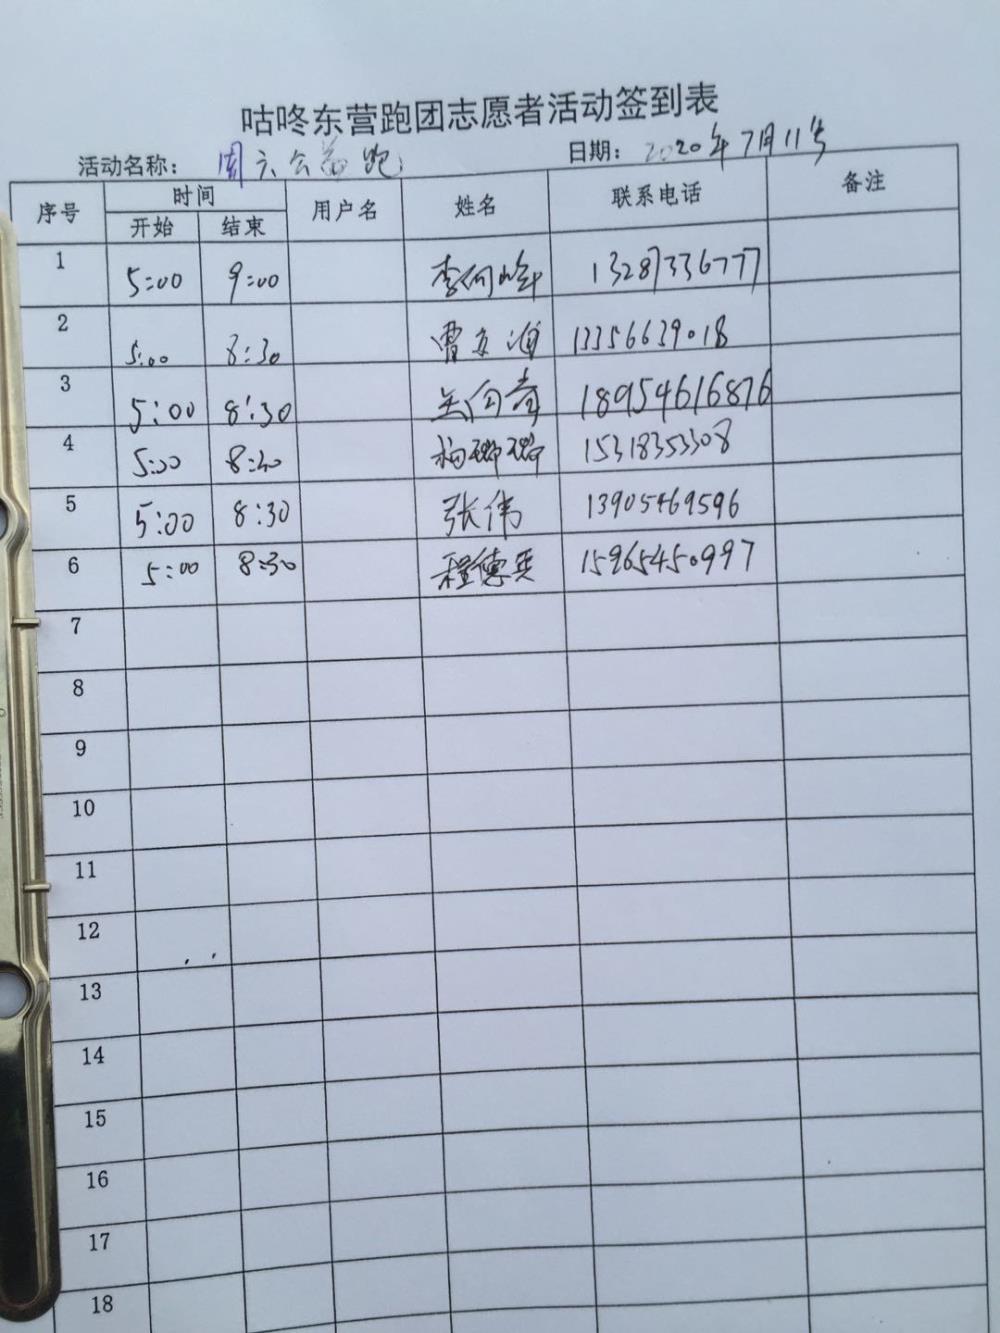 咕咚东营跑团志愿者活动签到表
活动名称: 周六公益跑 日期: 2020年7月11号
序号 时间 用户名 姓名 联系电话 备注
开始 结束
1 5:00 9:00 13287336777
2 5:00 8:30 13356639018
3 5:00 8:30 18954616876
4 5:00 8:30 杨璐璐 15318353308
5 5:00 8:30 张伟 13905469596
6 5:00 8:30 程德英 15965450997
7
8
9
10
11
12
13
14
15
16
17
18